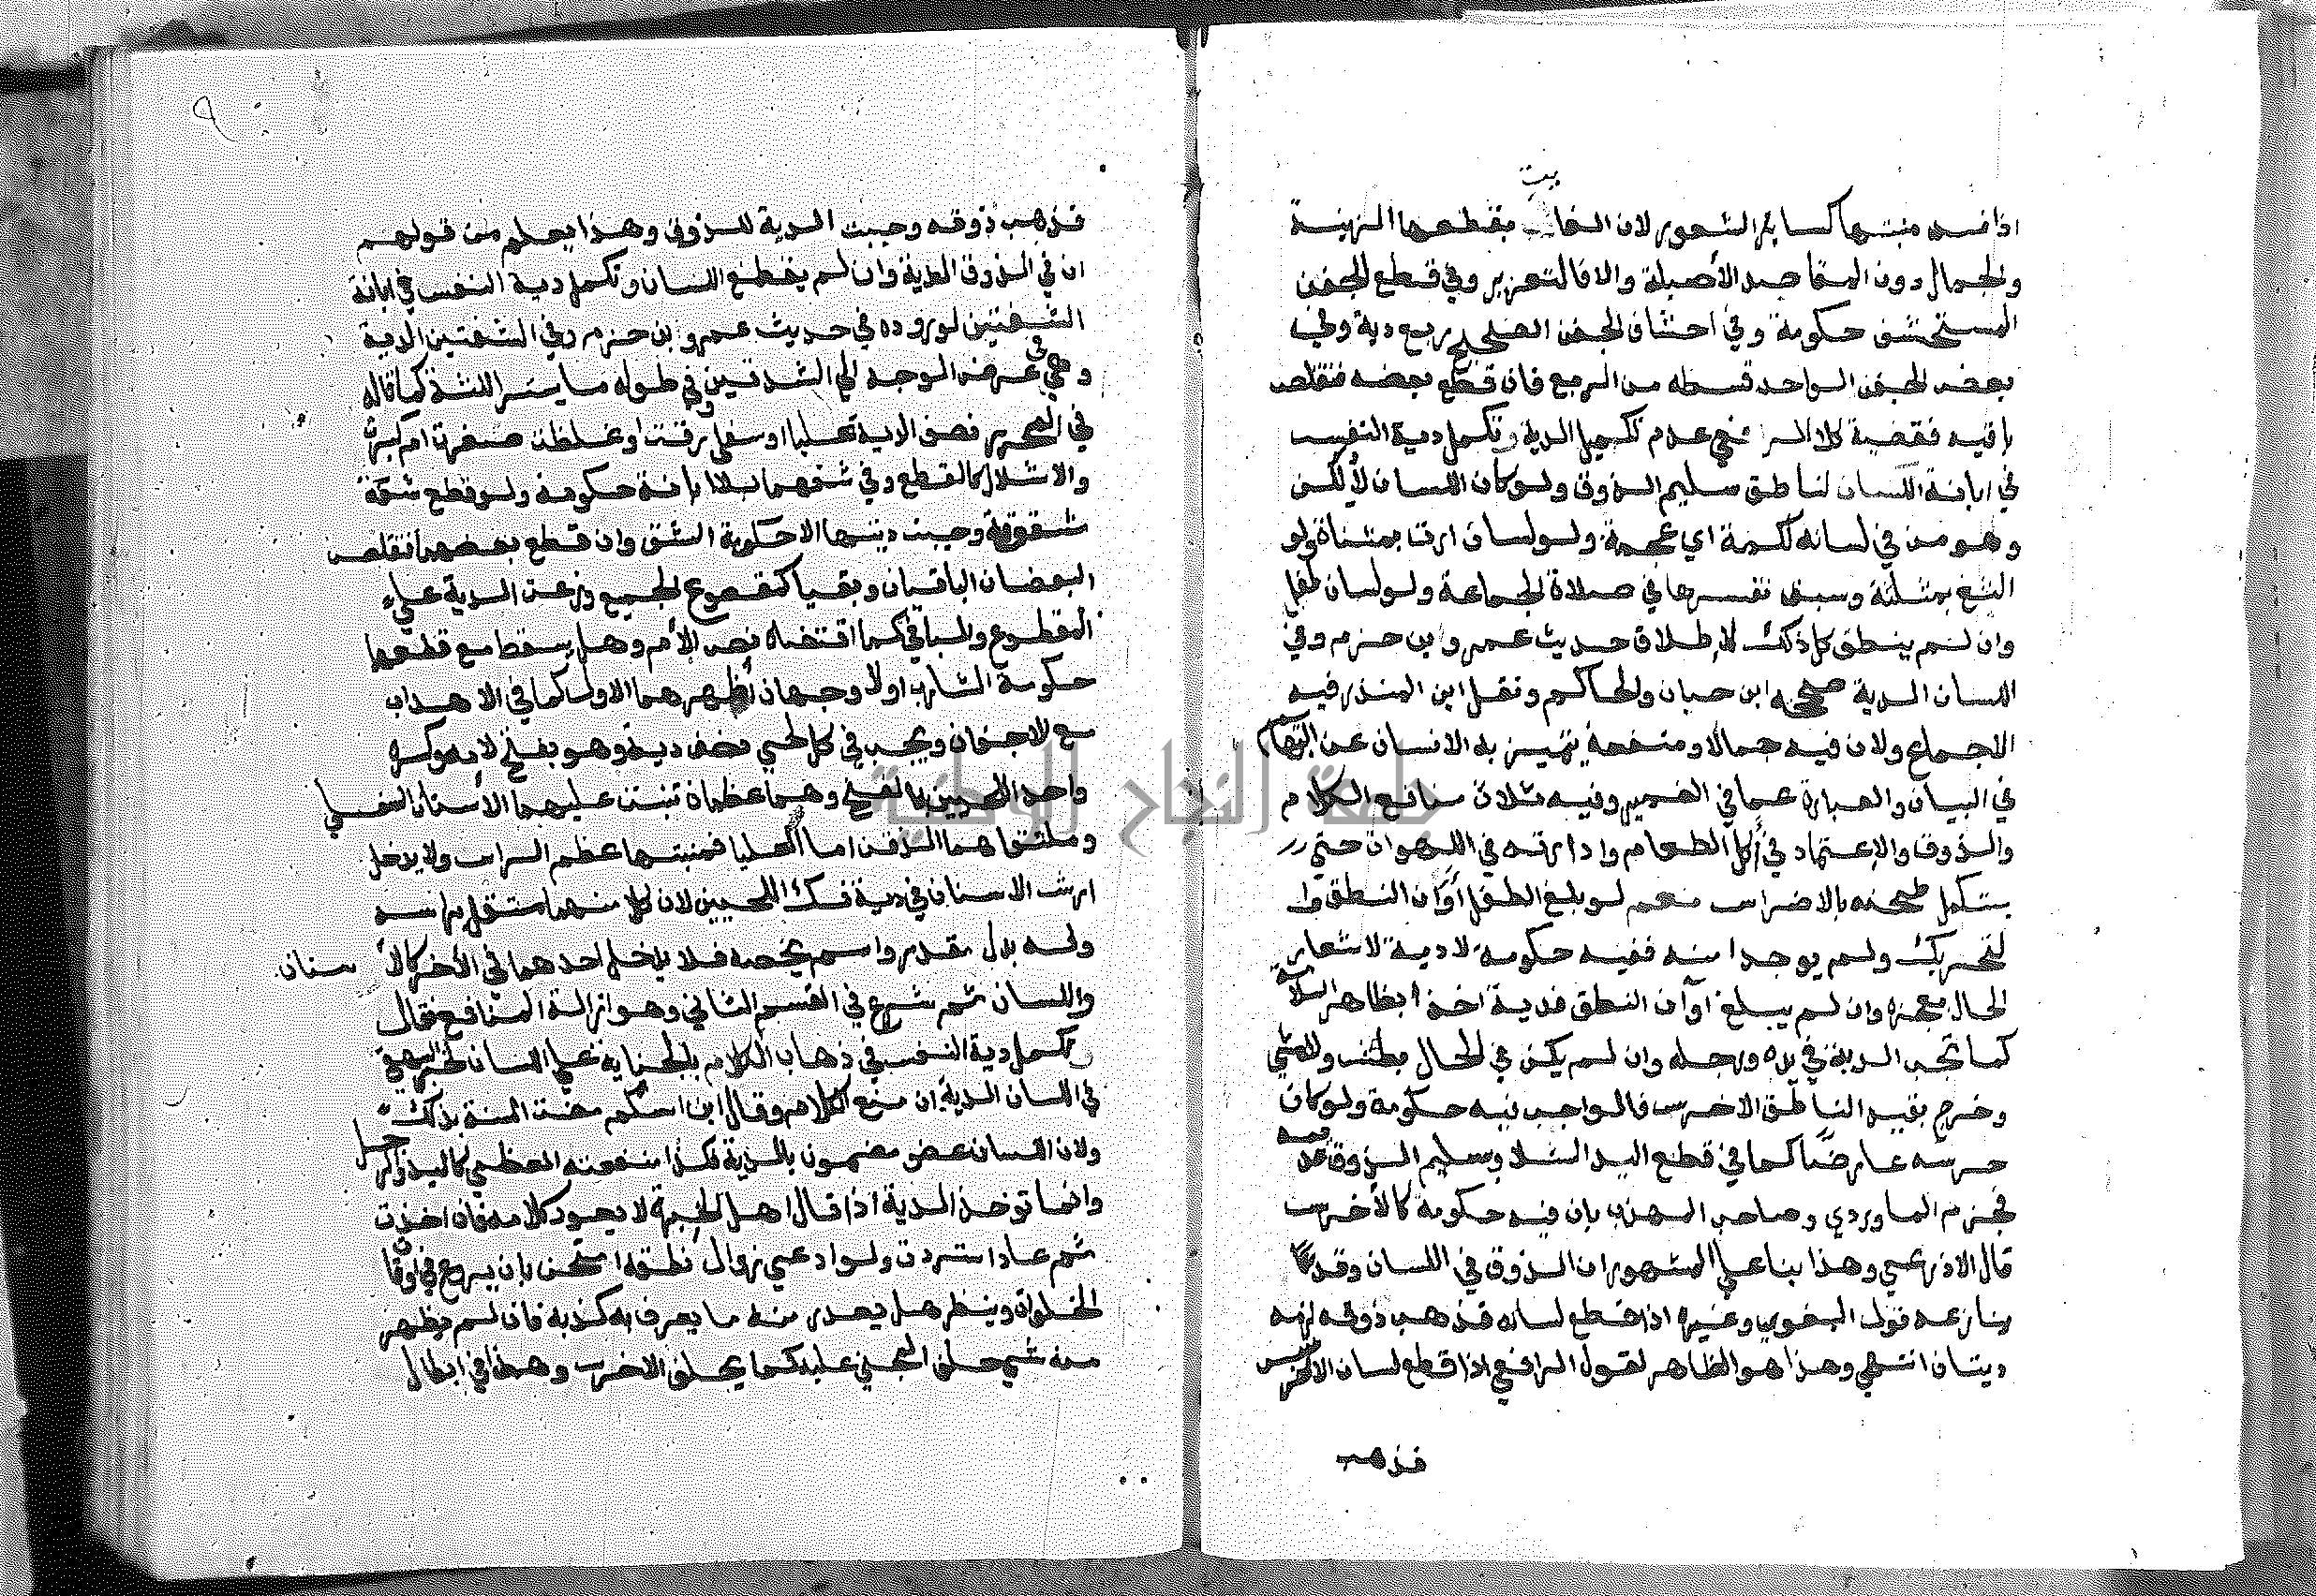 اذا فسد منبتها كسائر الشعور لان الفائت بقطعها الزينة
والجمال دون المقاصد الأصيلة والا فالتعزير وفي قطع الجفن
المستحشف حكومة وفي احشاف الجفن الصحيح ربع دية وفي
بعض الجفن الواحد قسطه من الربع فان قطع بعضه فتقلص
باقيه فقضية كلام الرافعي عدم تكميل الدية وتكمل دية النفس
في ابانة اللسان لناطق سليم الذوق ولو كان اللسان لألكن
وهو من في لسانه لكنة اي عجمة ولو لسان ارت بمثناة ولو
الثغ بمثلثة وسبق تفسيرها في صلاة الجماعة ولو لسان طفل
وان لم ينطق كل ذلك لاطلاق حديث عمرو ابن حزم وفي
اللسان الدية صححه ابن حبان والحاكم ونقل ابن المنذر فيه
الاجماع ولان فيه جمالا ومنفعة يتميز به الانسان عن البهائم
في البيان والعبارة عما في الضمير وفيه ثلاث منافع الكلام
والذوق والاعتماد في أكل الطعام وادارته في اللهوات حتى
يستكمل طحنه بالاضراس نعم لو بلغ الطفل أوان النطق وا
لتحريك ولم يوجدا منه ففيه حكومة لا دية لاشعار
الحال بعجزه وان لم يبلغ أوان النطق فدية اخذا بظاهر السلامة
كما تجب الدية في يده ورجله وان لم يكن في الحال بطش ولا مشي
وخرج بقيد الناطق الاخرس فالواجب فيه حكومة ولو كان
خرسه عارضا كما في قطع اليد الشلا وسليم الذوق عديمه
فجزم الماوردي وصاحب المهذب بان فيه حكومة كالأخرس
قال الاذرعي وهذا بنا على المشهور ان الذوق في اللسان وقد
ينازعه قول البغوي وغيره اذا قطع لسانه فذهب ذوقه لزمه
ديتان انتهى وهذا هو الظاهر لقول الرافعي اذا قطع لسان الاخرس
فذهب
فذهب ذوقه وجبت الدية للذوق وهذا يعلم من قولهم
ان في الذوق الدية وان لم يقطع اللسان وتكمل دية النفس في ابانة
الشفتين لوروده في حديث عمرو بن حزم وفي الشفتين الدية
وهي في عرض الوجه الى الشدقين وفي طوله ما يستر اللثة كما قاله
في المحرر فصف الدية عليا او سفلى رقت او غلظت صغرت ام كبرت
والاشلال كالقطع وفي شقهما بلا ابانة حكومة ولو قطع شفة
مشقوقة وجبت ديتها الا حكومة الشق وان قطع بعضهما فتقلص
البعضان الباقيان وبقيا كمقطوع الجميع وزعت الدية على
المقطوع والباقي كما اقتضاه نص الأم وهل يسقط مع قطعها
حكومة الشارب اولا وجهان أظهرهما الاول كما في الاهداب
مع الاجفان ويجب في كل لحي نصف دية وهو بفتح لامه وكسره
واحد اللحيين بالفتح وهما عظمان تنبت عليهما الأسنان السفلى
وملتقاهما الذقن اما العليا فمنبتها عظم الراس ولا يدخل
ارش الاسنان في دية فك اللحيين لان كلا منهما مستقل براسه
وله بدل مقدر واسم يخصه فلا يدخل احدهما في الأخر كالأسنان
واللسان ثم شرع في القسم الثاني وهو ازالة المنافع فقال
وتكمل دية النفس في ذهاب الكلام بالجناية على اللسان لخبر البيهقي
في اللسان الدية ان منع الكلام وقال ابن اسلم مضت السنة بذلك
ولان اللسان عضو مضمون بالدية فكذا منفعته العظمى كاليد والرجل
وانما توخذ الدية اذا قال اهل الخبرة لا يعود كلامه فان اخذت
ثم عاد استردت ولو ادعى زوال نطقه امتحن بان يروع في اوقات
الخلوات وينظر هل يصدر منه ما يعرف به كذبه فان لم يظهر
منه شي حلف المجني عليه كما يحلف الاخرس وهذا في ابطال
جامعة النجاح الوطنية